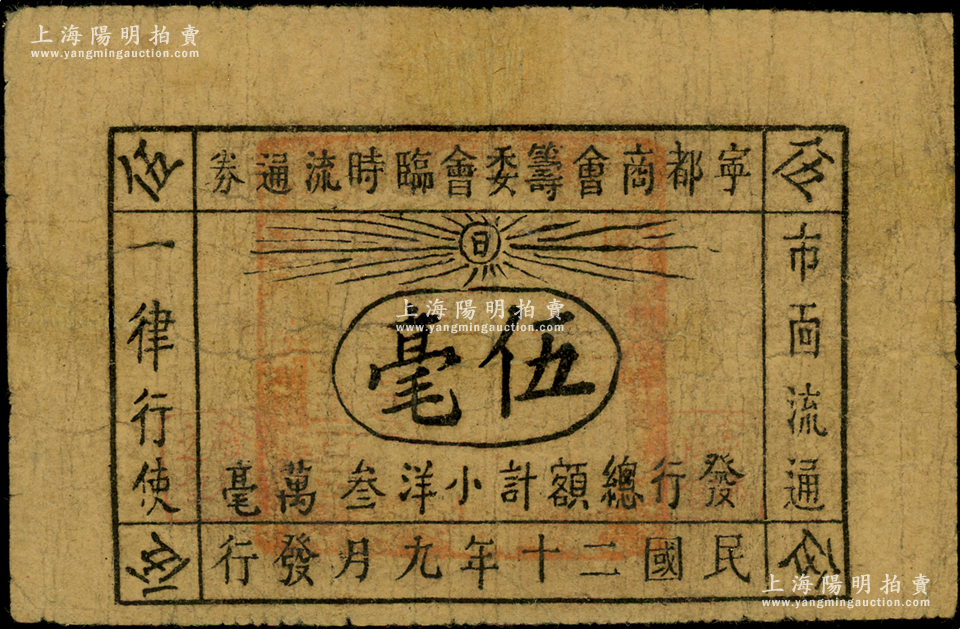 上海陽明拍賣
www.yangmingauction.com
寕都商會籌委會臨時流通券
市面流通
一律行使
日
伍毫
上海陽明拍賣
www.yangmingauction.com
發行總額計小洋叁萬毫
民國二十年九月發行
伍
上海陽明拍賣
www.yangmingauction.com